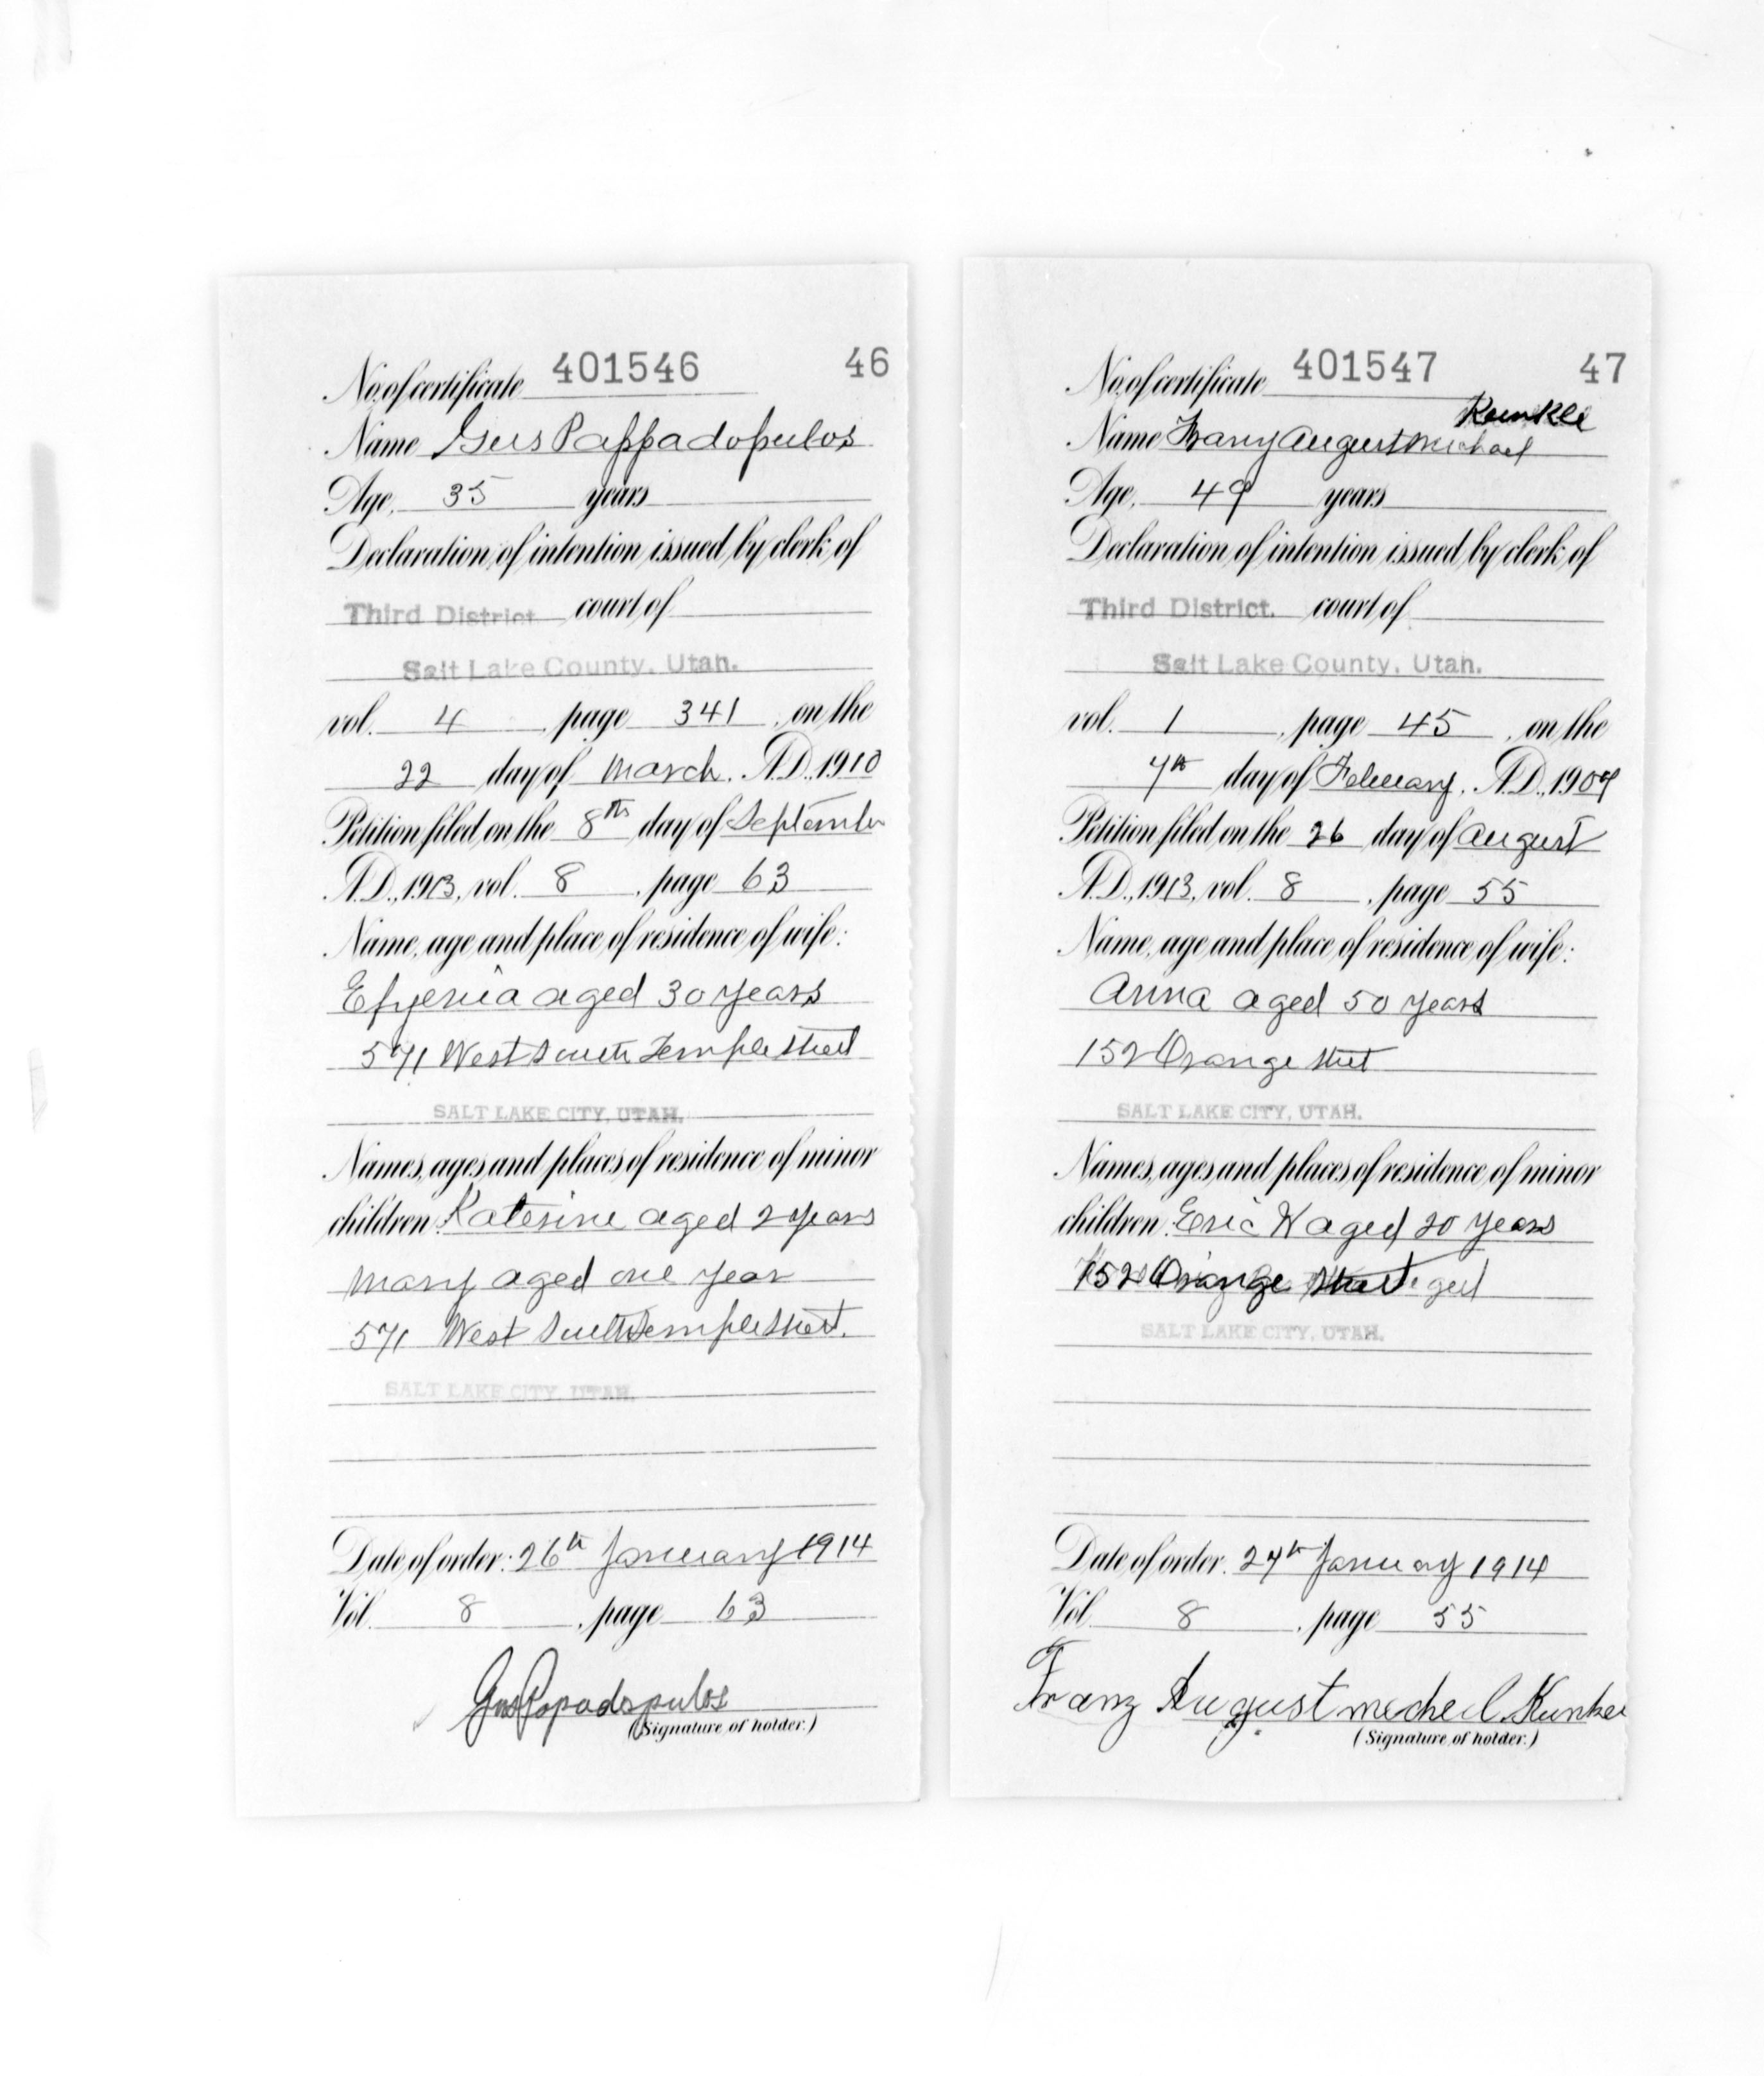 No. of certificate 401546 46
Name Gus Pappadopulos
Age, 35 years
Declaration of intention issued by clerk of
Third District court of
Salt Lake County, Utah.
vol. 4, page 341, on the
22 day of March, A.D. 1910
Petition filed on the 8th day of September
A.D., 1913, vol. 8, page 63
Name, age and place of residence of wife:
Efyenia aged 30 years
571 West South Temple Street
SALT LAKE CITY, UTAH.
Names, ages and places of residence of minor
children Katerine aged 2 years
Mary aged one year
571 West South Temple Street.
SALT LAKE CITY, UTAH.
Date of order: 26th January 1914
Vol. 8, page 63
Gus Papadopulos
(Signature of holder.)
No. of certificate 401547 47
Kunkel
Name Franz August Michael
Age, 49 years
Declaration of intention issued by clerk of
Third District. court of
Salt Lake County, Utah.
vol. 1, page 45, on the
7th day of February, A.D., 1907
Petition filed on the 26 day of August
A.D., 1913, vol. 8, page 55
Name, age and place of residence of wife:
Anna aged 50 years
152 Orange Street
SALT LAKE CITY, UTAH.
Names, ages and places of residence of minor
children Eric W aged 20 years
152 Orange Street
SALT LAKE CITY, UTAH.
Date of order: 27th January 1914
Vol. 8, page 55
Franz August Mechel Kunkel
(Signature of holder.)